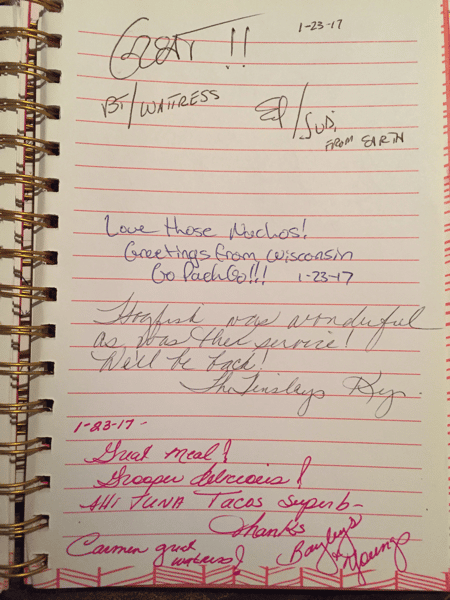 GREAT !! 1-23-17
BT/WAITRESS Ed/Judi
FROM EARTH
Love those Nachos!
Greetings from Wisconsin
Go Pack Go!!! 1-23-17
Hogfish was wonderful
as was the service!
We'll be back!
The Tinsleys Ky.
1-23-17-
Great meal!
Grooper delicious!
AHI TUNA Tacos superb-
Thanks
Carmen great waitress!
Bayleys
& Youngs